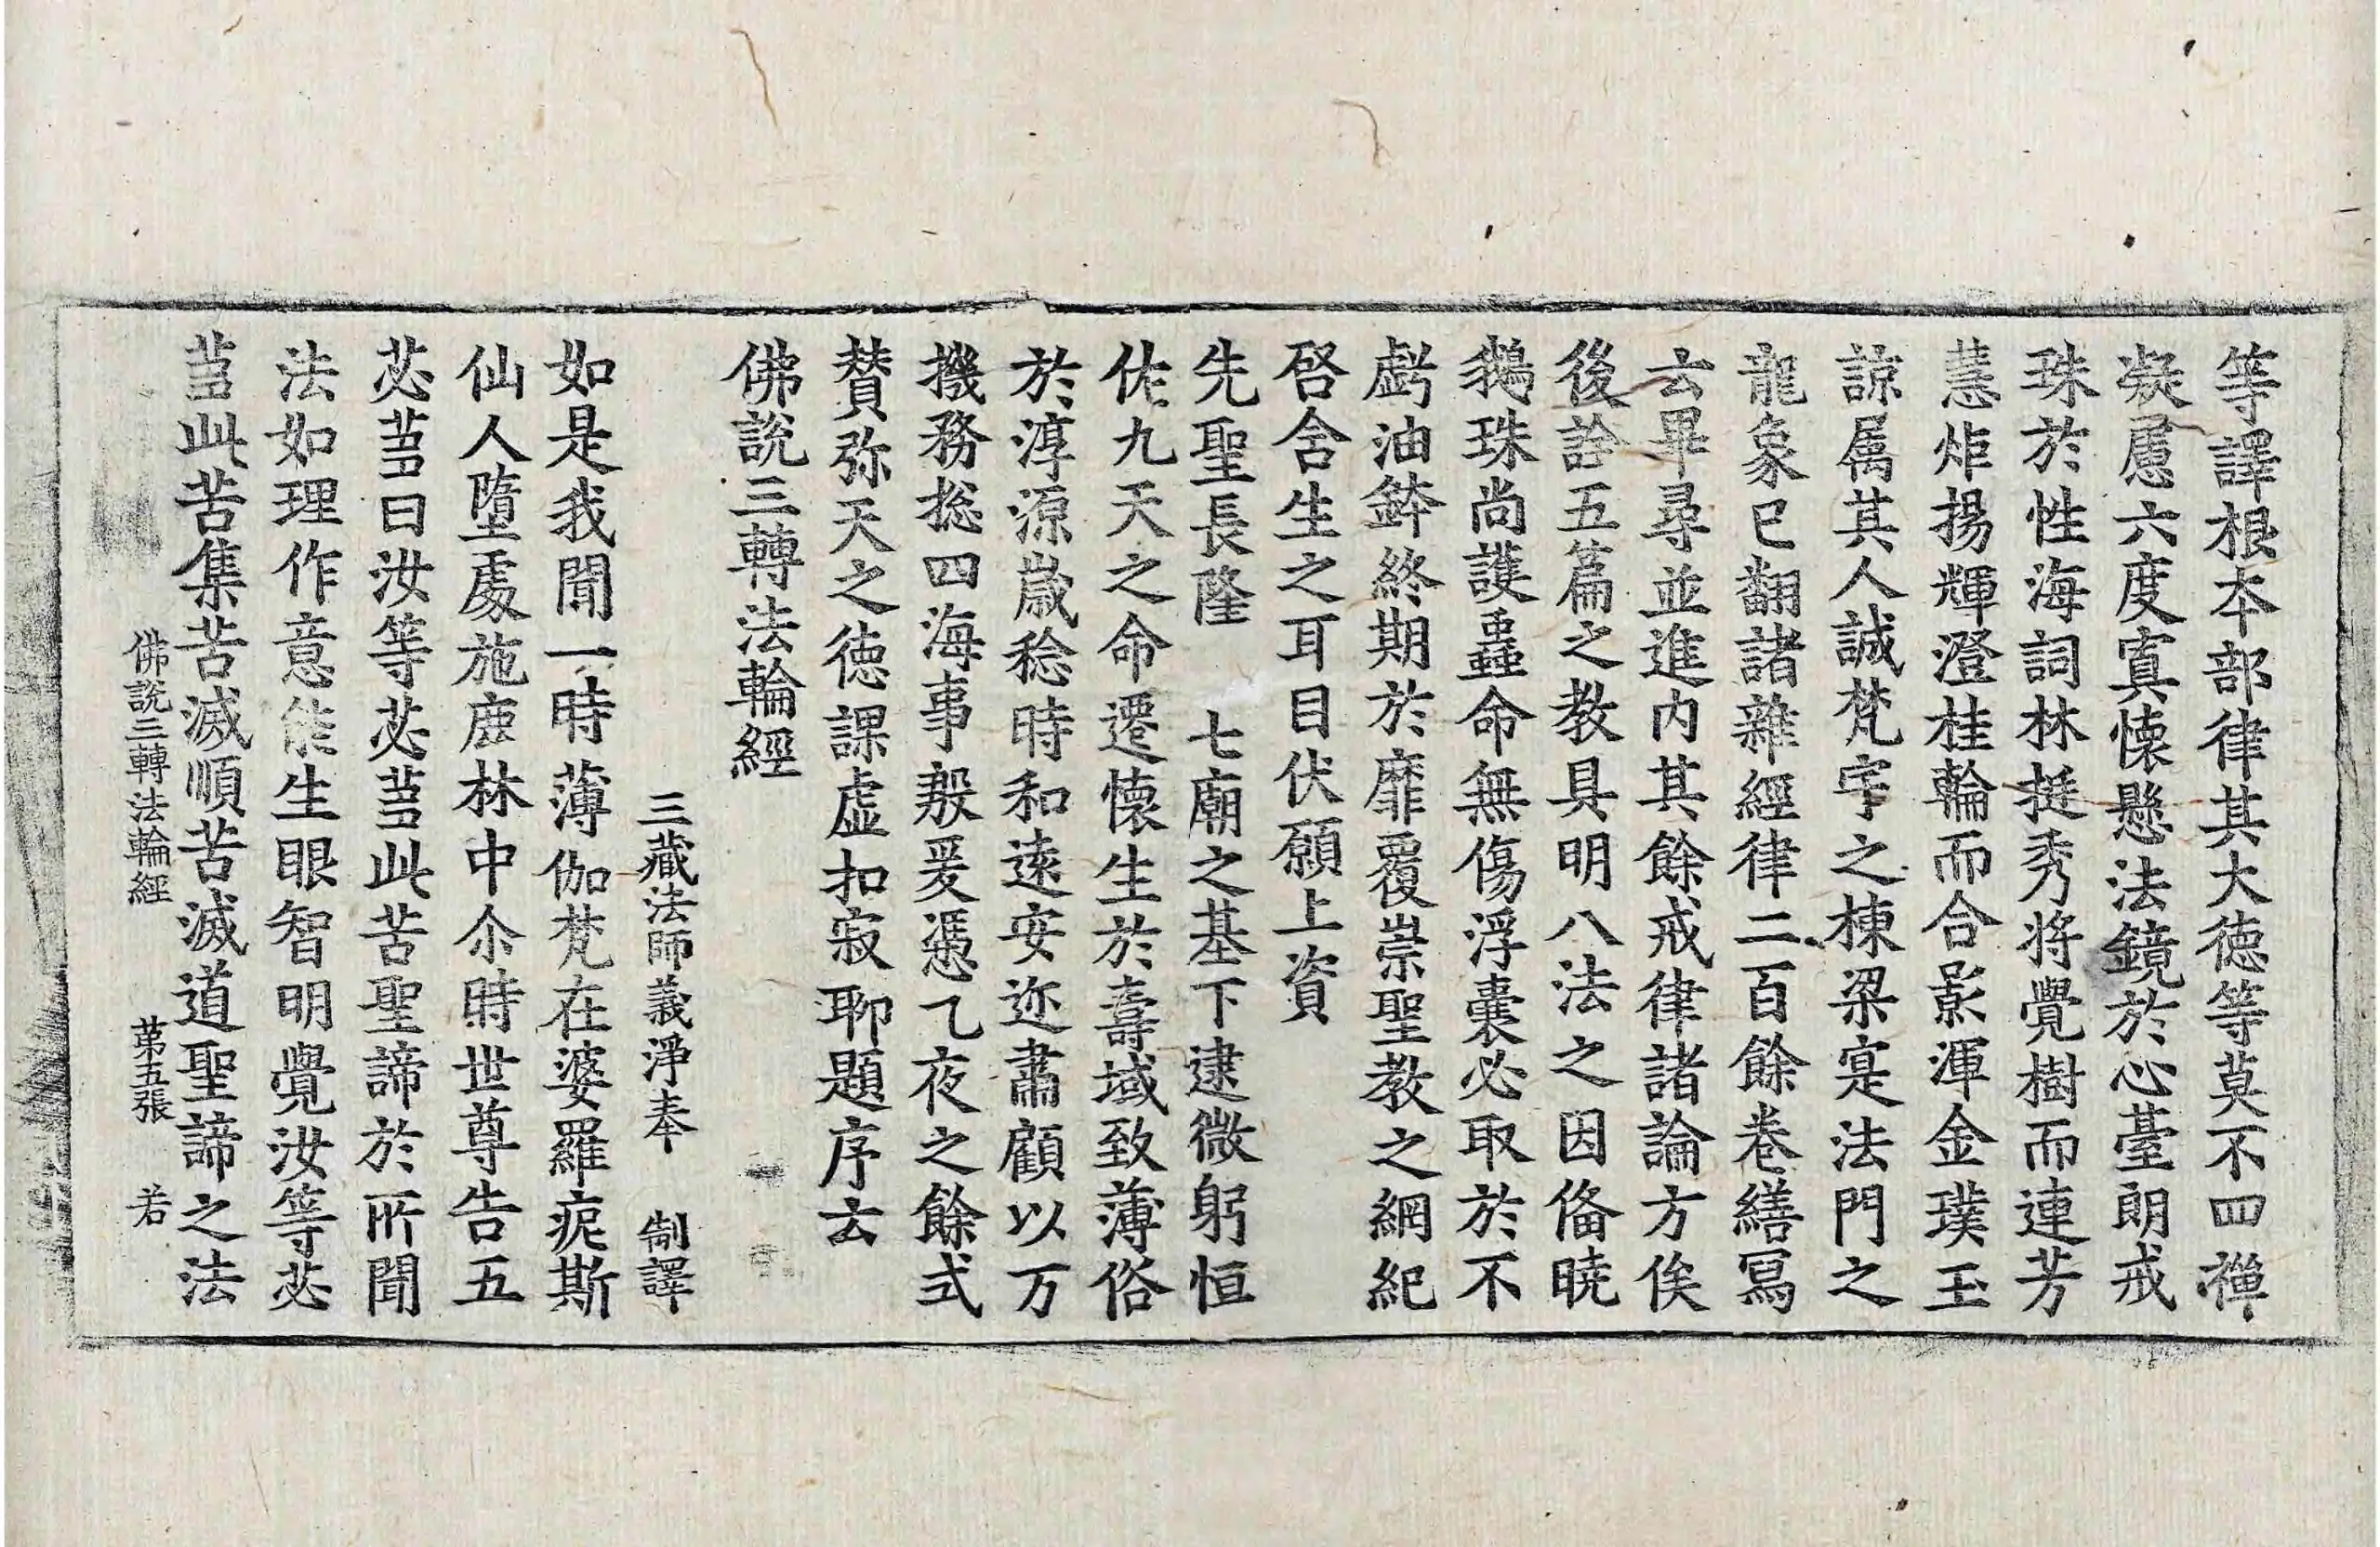 等譯根本部律其大德等莫不四禪
凝慮六度寘懷懸法鏡於心臺朗戒
珠於性海詞林挺秀將覺樹而連芳
慧炬揚輝澄桂輪而合影渾金璞玉
諒属其人誠梵宇之棟梁寔法門之
龍象已翻諸雜經律二百餘卷繕寫
云畢尋並進內其餘戒律諸論方俟
後詮五篇之教具明八法之因俻曉
鵝珠尚護蟲命無傷浮囊必取於不
虧油鉢終期於靡覆崇聖教之綱紀
啓含生之耳目伏願上資
先聖長隆　七廟之基下逮微躬恒
佐九天之命遷懷生於壽域致薄俗
於淳源歲稔時和遠安迩肅顧以万
機務捴四海事殷爰憑乙夜之餘式
賛弥天之德課虛扣寂聊題序云
佛說三轉法輪經
三藏法師義淨奉　制譯
如是我聞一時薄伽梵在婆羅痆斯
仙人墮處施鹿林中尒時世尊告五
苾芻曰汝等苾芻此苦聖諦於所聞
法如理作意能生眼智明覺汝等苾
芻此苦集苦滅順苦滅道聖諦之法
佛說三轉法輪經　第五張　若